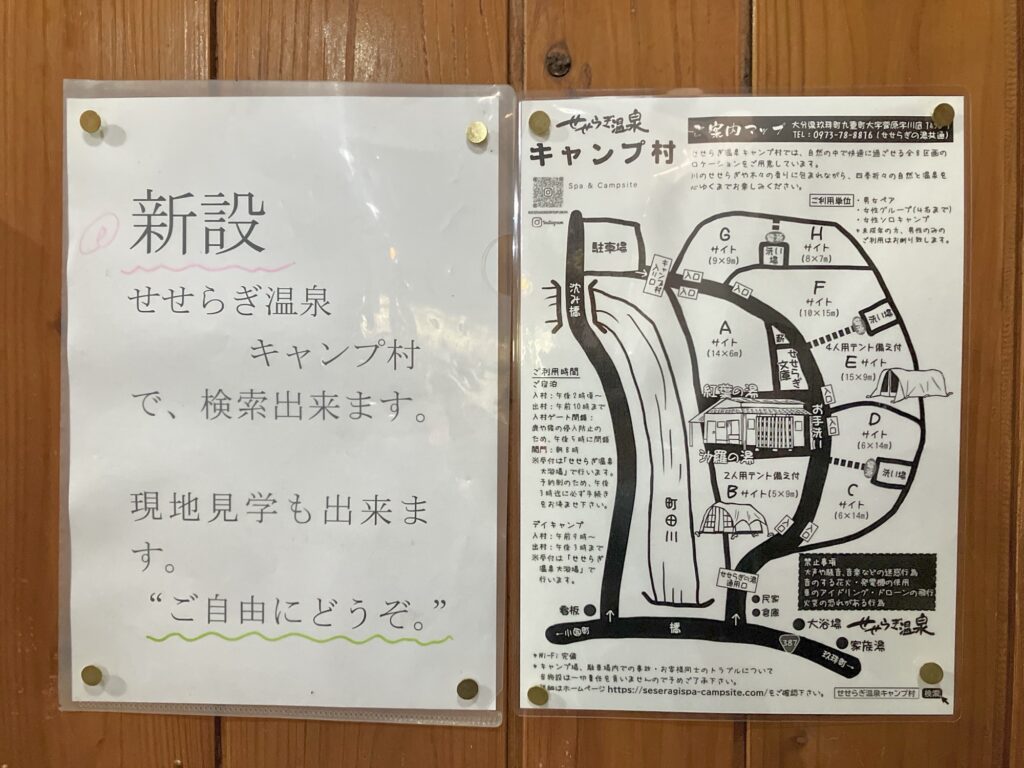 新設
せせらぎ温泉
キャンプ村
で、検索出来ます。
現地見学も出来ま
す。
“ご自由にどうぞ。”
せせらぎ温泉
キャンプ村
Spa & Campsite
Instagram
ご案内マップ
大分県玖珠郡九重町大字菅原字川底
TEL:0973-78-8816(せせらぎの湯共通)
せせらぎ温泉キャンプ村では、自然の中で快適に過ごせる全8区画の
ロケーションをご用意しています。
川のせせらぎや木々の香りに包まれながら、四季折々の自然と温泉を
心ゆくまでお楽しみください。
ご利用単位
・男女ペア
・女性グループ(4名まで)
・女性ソロキャンプ
*未成年の方、男性のみの
ご利用はお断り致します。
駐車場
キャンプ村入り口
沈み橋
G
サイト
(9×9m)
H
サイト
(8×7m)
洗い場
入口
入口
入口
F
サイト
(10×15m)
洗い場
A
サイト
(14×6m)
せせらぎ文庫
4人用テント備え付
E サイト
(15×9m)
入口
紅葉の湯
お手洗い
入口
沙羅の湯
D
サイト
(6×14m)
洗い場
2人用テント備え付
B サイト(5×9m)
C
サイト
(6×14m)
入口
入口
町田川
せせらぎの湯
通用口
ご利用時間
ご宿泊
入村:午後2時頃~
出村:午前10時まで
入村ゲート閉鎖:
鹿や猪の侵入防止の
ため、午後5時に閉鎖
開門:朝8時
※受付は「せせらぎ温泉
大浴場」で行います。
予約制のため、午後
3時迄に必ず手続き
をお済ませ下さい。
デイキャンプ
入村:午前9時~
出村:午後3時まで
※受付は「せせらぎ
温泉大浴場」で
行います。
禁止事項
大声や騒音、音楽などの迷惑行為
音のする花火・発電機の使用
車のアイドリング・ドローンの飛行
火災の恐れがある行為
看板
民家
倉庫
大浴場 せせらぎ温泉
家族湯
←小国町
橋
387
玖珠町→
*Wi-Fi 完備
*キャンプ場、駐車場内での事故・お客様同士のトラブルについて
当施設は一切責任を負いませんので予めご了承下さい。
詳細はホームページ https://seseragispa-campsite.com/をご確認下さい。
せせらぎ温泉キャンプ村 検索